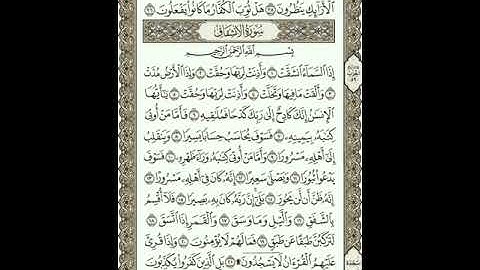 ٱلْأَرَآئِكِ يَنظُرُونَ ٣٥ هَلْ ثُوِّبَ ٱلْكُفَّارُ مَا كَانُوا۟ يَفْعَلُونَ ٣٦
سُورَةُ الانشِقَاقِ
بِسْمِ ٱللَّهِ ٱلرَّحْمَٰنِ ٱلرَّحِيمِ
إِذَا ٱلسَّمَآءُ ٱنشَقَّتْ ١ وَأَذِنَتْ لِرَبِّهَا وَحُقَّتْ ٢ وَإِذَا ٱلْأَرْضُ مُدَّتْ
٣ وَأَلْقَتْ مَا فِيهَا وَتَخَلَّتْ ٤ وَأَذِنَتْ لِرَبِّهَا وَحُقَّتْ ٥ يَٰٓأَيُّهَا
ٱلْإِنسَٰنُ إِنَّكَ كَادِحٌ إِلَىٰ رَبِّكَ كَدْحًا فَمُلَٰقِيهِ ٦ فَأَمَّا مَنْ أُوتِىَ
كِتَٰبَهُۥ بِيَمِينِهِۦ ٧ فَسَوْفَ يُحَاسَبُ حِسَابًا يَسِيرًا ٨ وَيَنقَلِبُ
إِلَىٰٓ أَهْلِهِۦ مَسْرُورًا ٩ وَأَمَّا مَنْ أُوتِىَ كِتَٰبَهُۥ وَرَآءَ ظَهْرِهِۦ ١٠ فَسَوْفَ
يَدْعُوا۟ ثُبُورًا ١١ وَيَصْلَىٰ سَعِيرًا ١٢ إِنَّهُۥ كَانَ فِىٓ أَهْلِهِۦ مَسْرُورًا ١٣
إِنَّهُۥ ظَنَّ أَن لَّن يَحُورَ ١٤ بَلَىٰٓ إِنَّ رَبَّهُۥ كَانَ بِهِۦ بَصِيرًا ١٥ فَلَآ أُقْسِمُ
بِٱلشَّفَقِ ١٦ وَٱلَّيْلِ وَمَا وَسَقَ ١٧ وَٱلْقَمَرِ إِذَا ٱتَّسَقَ ١٨
لَتَرْكَبُنَّ طَبَقًا عَن طَبَقٍ ١٩ فَمَا لَهُمْ لَا يُؤْمِنُونَ ٢٠ وَإِذَا قُرِئَ
عَلَيْهِمُ ٱلْقُرْءَانُ لَا يَسْجُدُونَ ٢١ بَلِ ٱلَّذِينَ كَفَرُوا۟ يُكَذِّبُونَ
سجدة